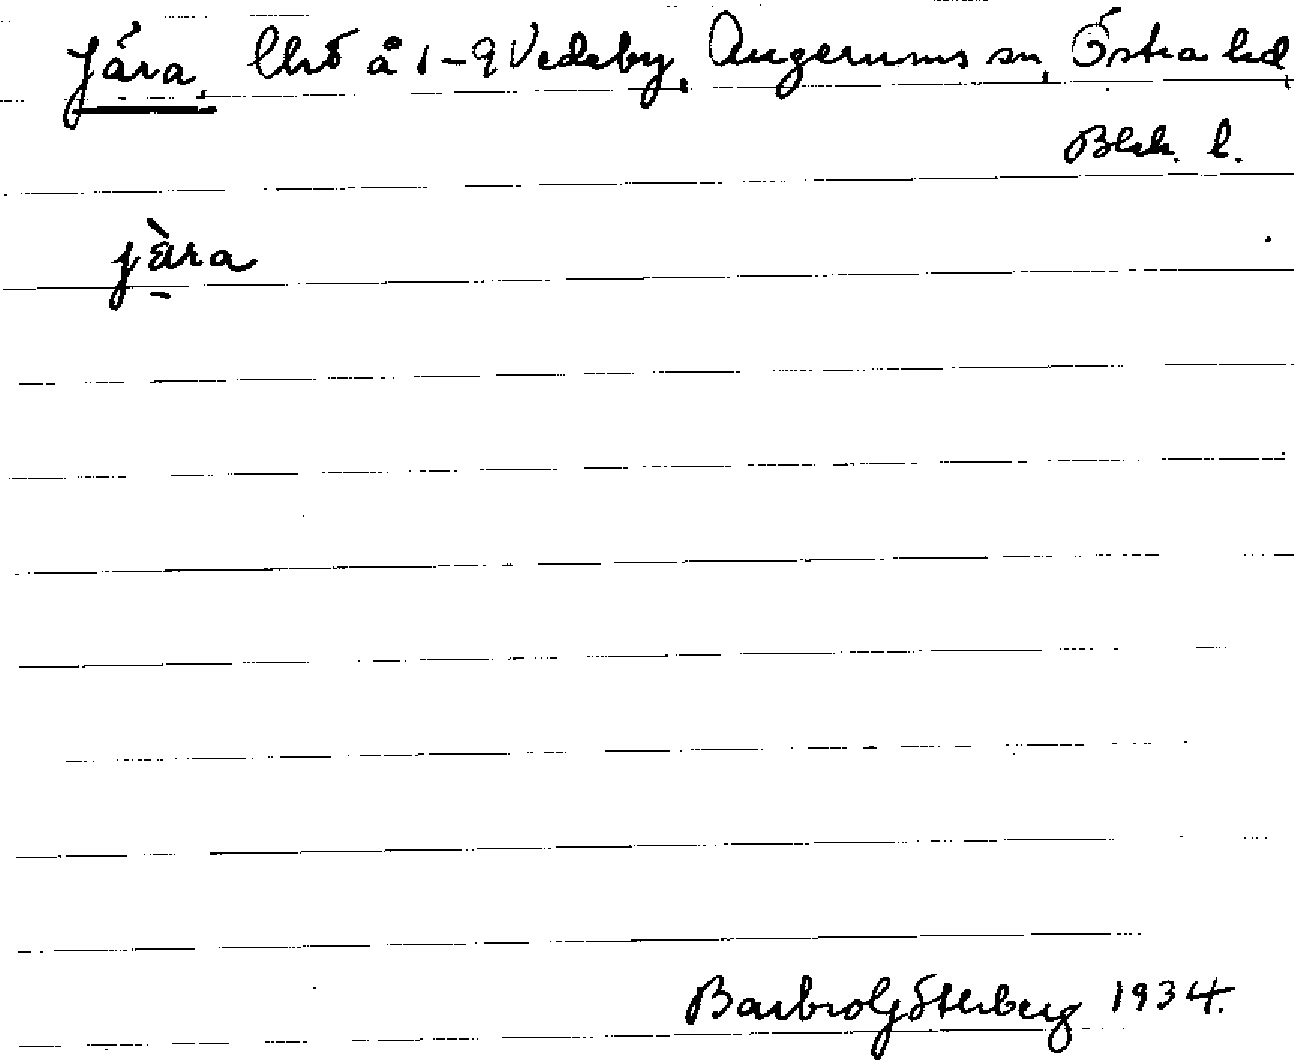 Jära, lhö å 1-9 Vedeby, Augerums sn, Östra hd,
Blek. l.
jära
Barbro Götherberg 1934.